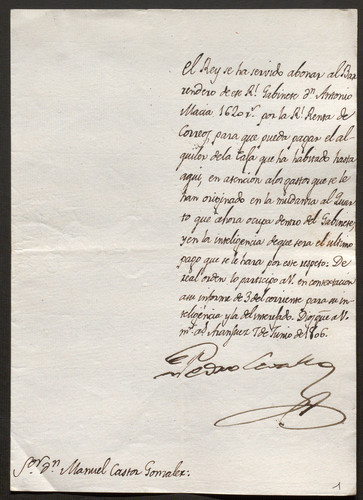 El Rey se ha servido abonar al Bar
rendero de ese Rl. Gabinete Dn. Antonio
Macia 1620 rs. por la Rl. Renta de
Correos, para que pueda pagar el al-
quiler de la Casa que ha habitado hasta
aqui, en atención a los gastos que se le
han originado en la mudanza al Quar
to que ahora ocupa dentro del Gabinete,
y en la inteligencia de que sera el ultimo
pago que se le hara por este respeto: De
real orden lo participo a V. en contestacion
a su informe de 3 del corriente para su in
teligencia y la del interesado. Dios gue. a V.
ms. as. Aranjuez 7 de Junio de 1806.
Pedro Cevallos
Sor. Dn. Manuel Castor Gonzalez.
1